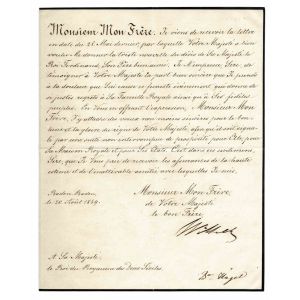 Monsieur Mon Frère. Je viens de recevoir la lettre
en date du 22 Mai dernier, par laquelle Votre Majesté a bien
voulu me donner la triste nouvelle du décès de Sa Majesté le
Roi Ferdinand, Son Père bien aimé. Je M'empresse, Sire, de
témoigner à Votre Majesté la part bien sincère que Je prends
à la douleur que Lui cause ce funeste événement qui donne
de si justes regrets à Sa Famille Royale ainsi qu'à Ses fidèles
peuples. En Vous en offrant l'expression, Monsieur Mon
Frère,
et la gloire du règne de Votre Majesté, afin qu'il soit
par une suite non interrompue de prospérités pour Elle, pour
Sa Maison Royale et pour Ses États. C'est dans ces sentiments,
Sire, que Je Vous prie de recevoir les assurances de la haute
estime et de l'inaltérable amitié avec lesquelles Je suis,
Monsieur Mon Frère
de Votre Majesté
le bon Frère
Baden-Baden,
le 20 Août 1859.
A Sa Majesté
le Roi du Royaume des Deux Siciles